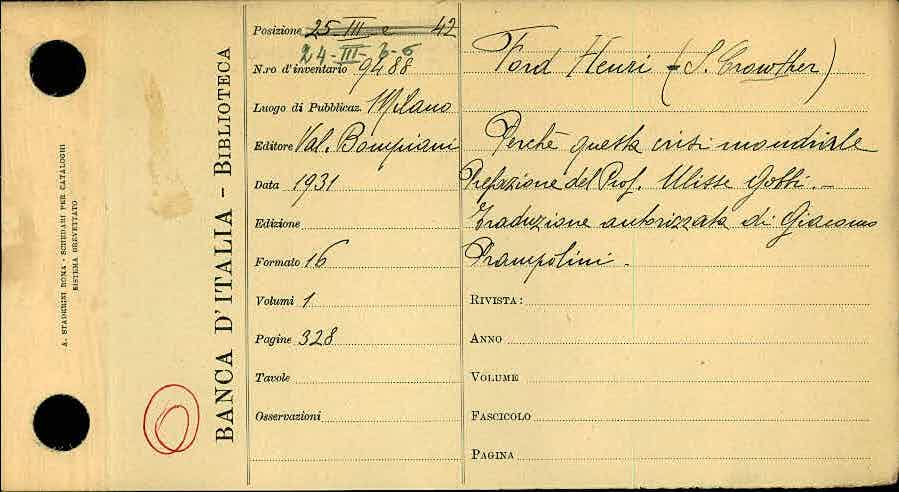 A. STADERINI ROMA - SCHEDARI PER CATALOGHI
SISTEMA BREVETTATO
BANCA D'ITALIA - BIBLIOTECA
Posizione 25-III e 42
24-III-
N.ro d'inventario 9488
Luogo di Pubblicaz. Milano
Editore Val. Bompiani
Data 1931
Edizione
Formato 16
Volumi 1
Pagine 328
Tavole
Osservazioni
Ford Henri - (S. Crowther)
Perchè questa crisi mondiale
Prefazione del Prof. Ulisse Gobbi. -
Traduzione autorizzata di Giacomo
Prampolini -
RIVISTA:
ANNO
VOLUME
FASCICOLO
PAGINA